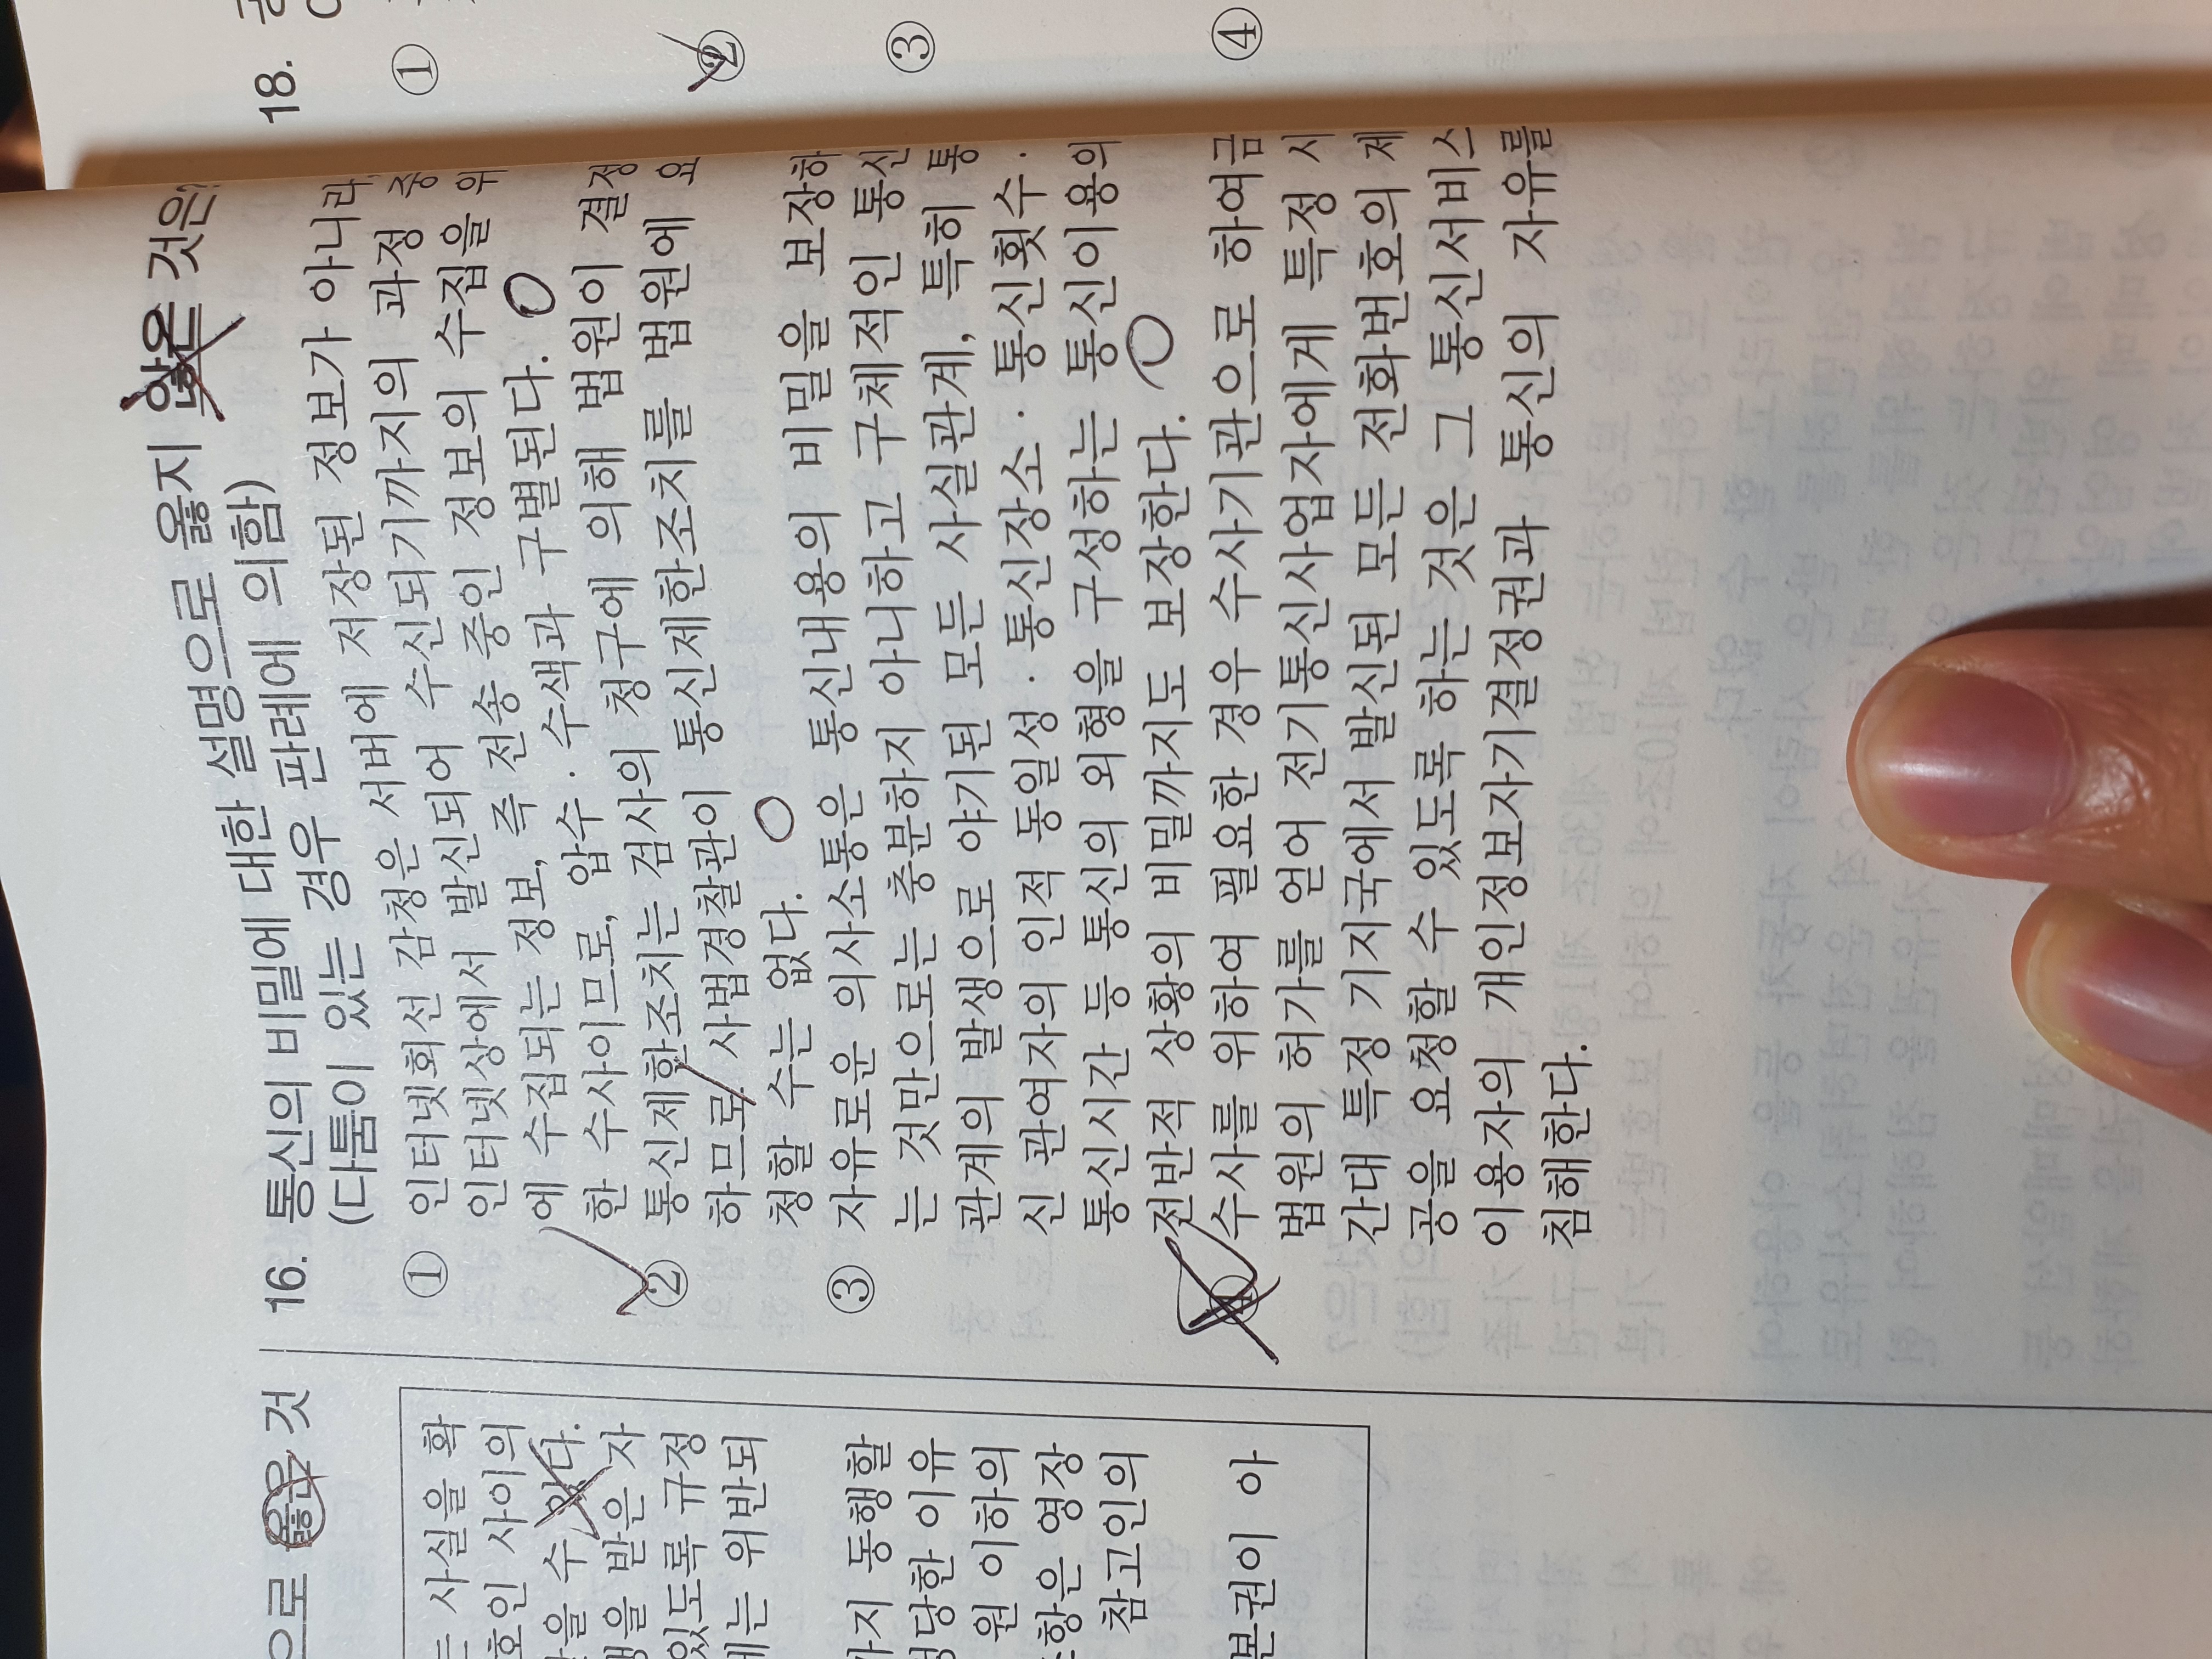 으로 옳은 것
사실을 확
호인 사이의
수 있다.
받은 자
있도록 규정
에는 위반되
가지 동행할
정당한 이유
원 이하의
조항은 영장
참고인의
본권이 아
16. 통신의 비밀에 대한 설명으로 옳지 않은 것은?
(다툼이 있는 경우 판례에 의함)
① 인터넷회선 감청은 서버에 저장된 정보가 아니라,
인터넷상에서 발신되어 수신되기까지의 과정 중
에 수집되는 정보, 즉 전송 중인 정보의 수집을 위
한 수사이므로, 압수·수색과 구별된다.
② 통신제한조치는 검사의 청구에 의해 법원이 결정
하므로 사법경찰관이 통신제한조치를 법원에 요
청할 수는 없다.
③ 자유로운 의사소통은 통신내용의 비밀을 보장하
는 것만으로는 충분하지 아니하고 구체적인 통신
관계의 발생으로 야기된 모든 사실관계, 특히 통
신 관여자의 인적 동일성·통신장소·통신횟수·
통신시간 등 통신의 외형을 구성하는 통신이용의
전반적 상황의 비밀까지도 보장한다.
④ 수사를 위하여 필요한 경우 수사기관으로 하여금
법원의 허가를 얻어 전기통신사업자에게 특정 시
간대 특정 기지국에서 발신된 모든 전화번호의 제
공을 요청할 수 있도록 하는 것은 그 통신서비스
이용자의 개인정보자기결정권과 통신의 자유를
침해한다.
18.
①
②
③
④